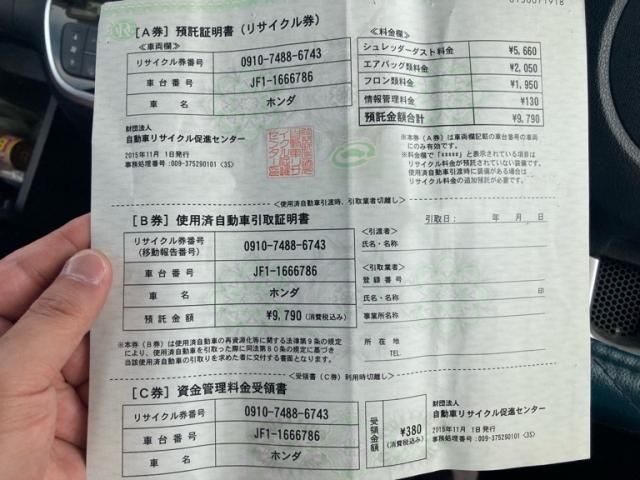 [A券] 預託証明書 (リサイクル券)
≪車両欄≫
リサイクル券番号 0910-7488-6743
車台番号 JF1-1666786
車名 ホンダ
≪料金欄≫
シュレッダーダスト料金 ¥5,660
エアバッグ類料金 ¥2,050
フロン類料金 ¥1,950
情報管理料金 ¥130
預託金額合計 ¥9,790
財団法人
自動車リサイクル促進センター
2015年11月 1日発行
事務処理番号:009-375290101 (3S)
※本券(A券)は車両欄記載の車台番号の車両
にのみ有効です。
※料金欄で「*****」と表示されている項目は
リサイクル料金が預託されていない装備です。
使用済自動車引渡時に装備がある場合は、
リサイクル料金の追加預託が必要です。
<使用済自動車引渡時、引取業者切離し>
[B券] 使用済自動車引取証明書
リサイクル券番号
(移動報告番号) 0910-7488-6743
車台番号 JF1-1666786
車名 ホンダ
預託金額 ¥9,790 (消費税込み)
※本券(B券)は使用済自動車の再資源化等に関する法律第9条の規定
により、使用済自動車を引取った際に同法第80条の規定に基づき
当該使用済自動車の引取りを求めた者に交付する書面となります。
引取日: 年 月 日
<引渡者>
氏名・名称
<引取業者>
登録番号
氏名・名称 印
事業所名称
所在地
TEL.
<受領書(C券)利用時切離し>
[C券] 資金管理料金受領書
リサイクル券番号 0910-7488-6743
車台番号 JF1-1666786
車名 ホンダ
受領金額 ¥380
(消費税込み)
財団法人
自動車リサイクル促進センター
2015年11月 1日発行
事務処理番号:009-375290101 (3S)